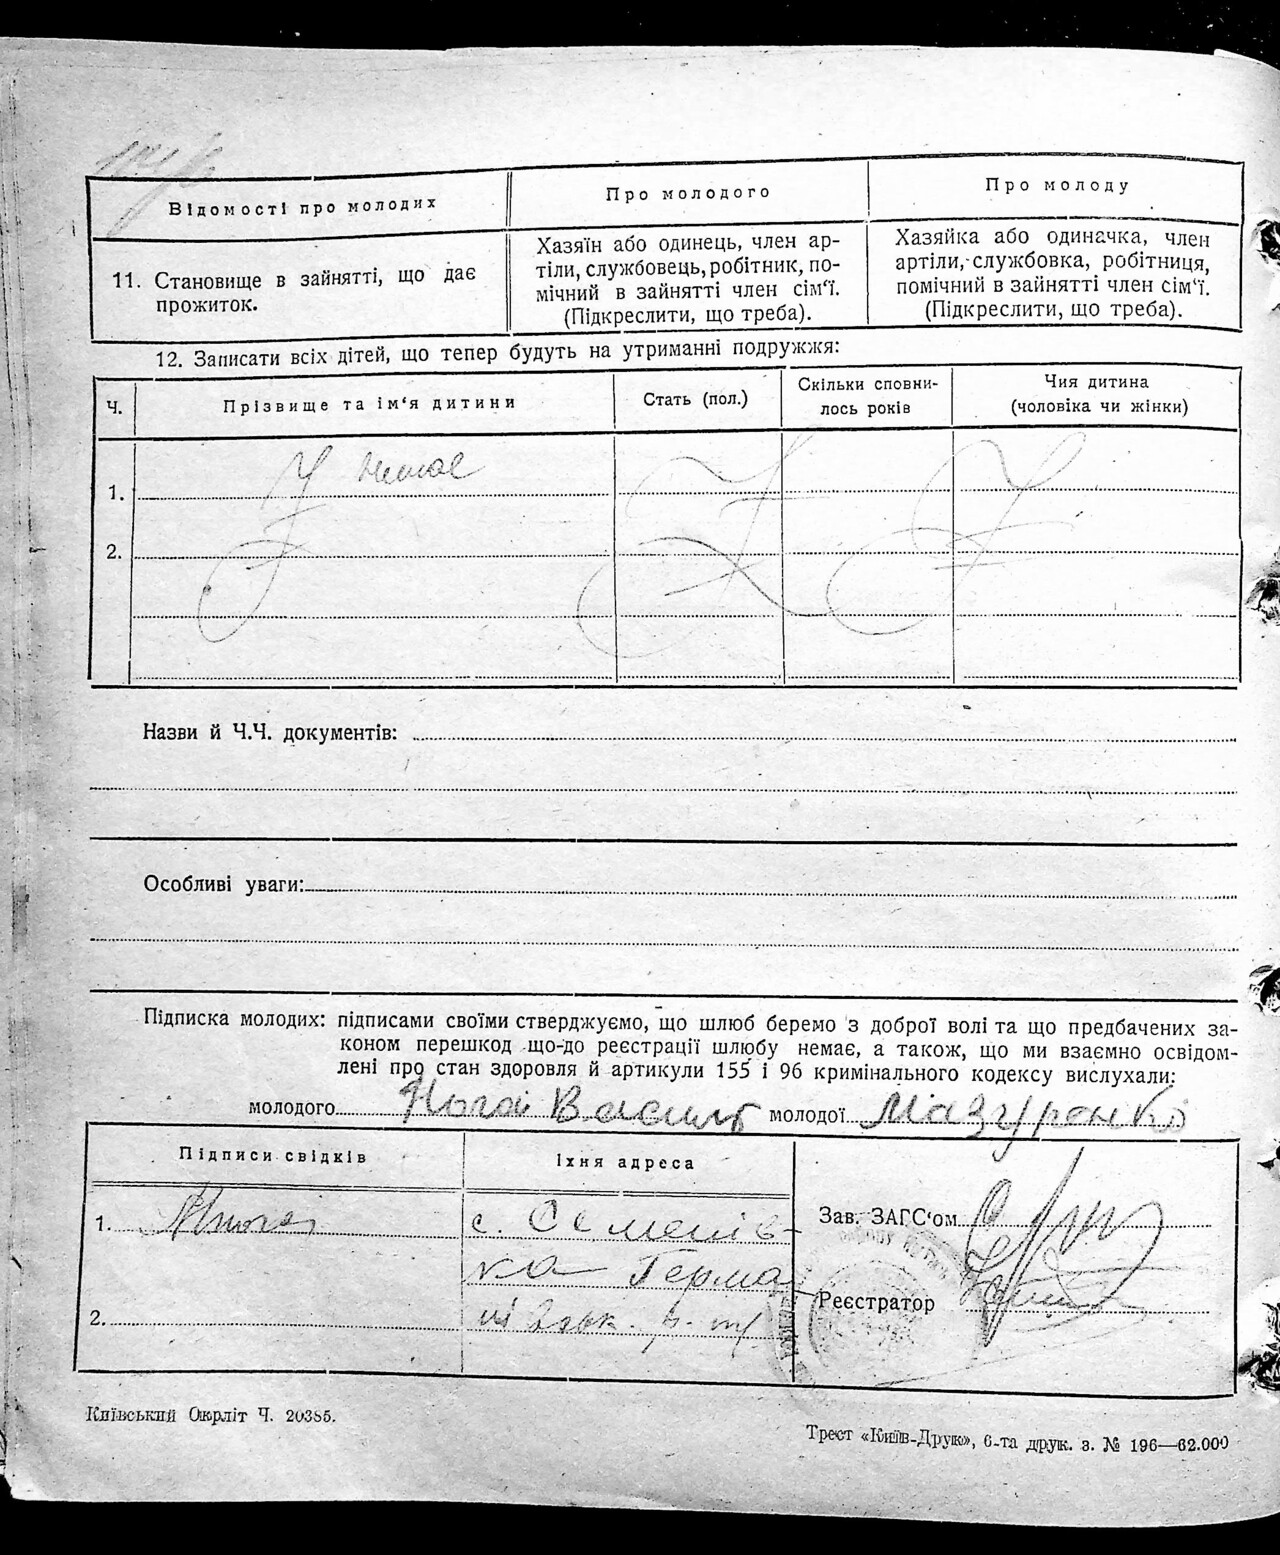 Відомості про молодих
Про молодого
Про молоду
11. Становище в зайнятті, що дає
прожиток.
Хазяїн або одинець, член ар-
тіли, службовець, робітник, по-
мічний в зайнятті член сім'ї.
(Підкреслити, що треба).
Хазяйка або одиначка, член
артіли, службовка, робітниця,
помічний в зайнятті член сім'ї.
(Підкреслити, що треба).
12. Записати всіх дітей, що тепер будуть на утриманні подружжя:
Ч.
Прізвище та ім'я дитини
Стать (пол.)
Скільки сповни-
лось років
Чия дитина
(чоловіка чи жінки)
1. немає
2.
Назви й Ч.Ч. документів:
Особливі уваги:
Підписка молодих: підписами своїми стверджуємо, що шлюб беремо з доброї волі та що предбачених за-
коном перешкод що-до реєстрації шлюбу немає, а також, що ми взаємно освідом-
лені про стан здоровля й артикули 155 і 96 кримінального кодексу вислухали:
молодого Нога Василь молодої Мазуренко
Підписи свідків
Їхня адреса
1.
с. Семенів-
ка Герма
2.
Зав. ЗАГС'ом
Реєстратор
Київський Окрліт Ч. 20385.
Трест «Київ-Друк», 6-та друк. з. № 196—62.000